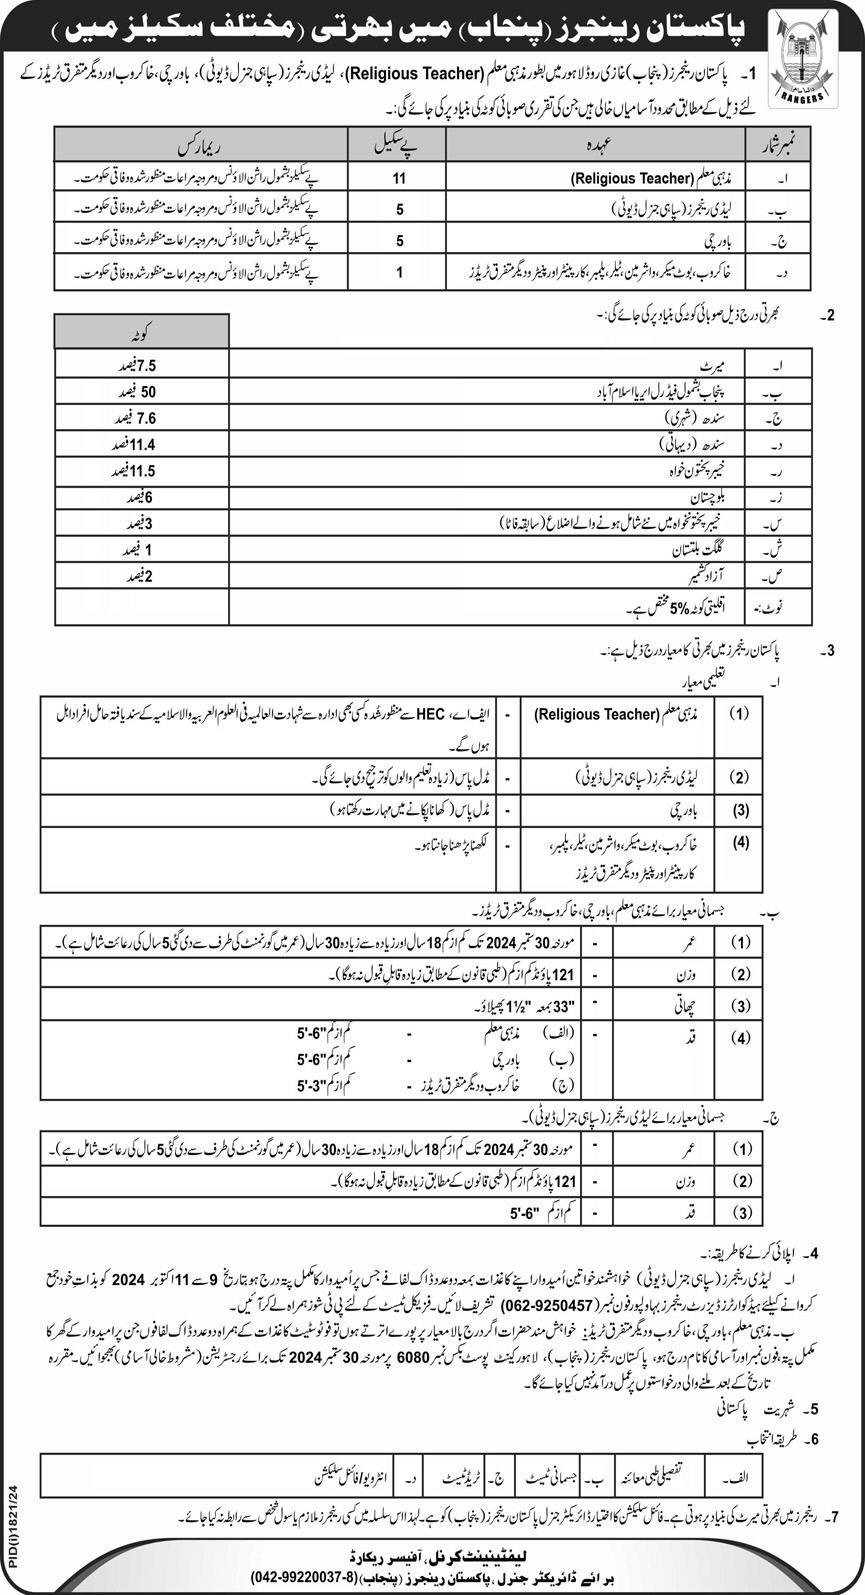 پاکستان رینجرز (پنجاب) میں بھرتی (مختلف سکیلز میں)
RANGERS
1۔ پاکستان رینجرز (پنجاب) غازی روڈ لاہور میں بطور مذہبی معلم (Religious Teacher)، لیڈی رینجرز (سپاہی جنرل ڈیوٹی)، باورچی، خاکروب اور دیگر متفرق ٹریڈز کے
لئے ذیل کے مطابق محدود آسامیاں خالی ہیں جن کی تقرری صوبائی کوٹہ کی بنیاد پر کی جائے گی:۔
نمبر شمار عہدہ پے سکیل ریمارکس
ا۔ مذہبی معلم (Religious Teacher) 11 پے سکیلز بشمول راشن الاؤنس ومروجہ مراعات منظور شدہ وفاقی حکومت۔
ب۔ لیڈی رینجرز (سپاہی جنرل ڈیوٹی) 5 پے سکیلز بشمول راشن الاؤنس ومروجہ مراعات منظور شدہ وفاقی حکومت۔
ج۔ باورچی 5 پے سکیلز بشمول راشن الاؤنس ومروجہ مراعات منظور شدہ وفاقی حکومت۔
د۔ خاکروب، بوٹ میکر، واشرمین، ٹیلر، پلمبر، کارپینٹر اور پینٹر و دیگر متفرق ٹریڈز 1 پے سکیلز بشمول راشن الاؤنس ومروجہ مراعات منظور شدہ وفاقی حکومت۔
2۔ بھرتی درج ذیل صوبائی کوٹہ کی بنیاد پر کی جائے گی:۔
کوٹہ
ا۔ میرٹ 7.5 فیصد
ب۔ پنجاب بشمول فیڈرل ایریا اسلام آباد 50 فیصد
ج۔ سندھ (شہری) 7.6 فیصد
د۔ سندھ (دیہاتی) 11.4 فیصد
ر۔ خیبر پختون خواہ 11.5 فیصد
ز۔ بلوچستان 6 فیصد
س۔ خیبر پختونخواہ میں نئے شامل ہونے والے اضلاع (سابقہ فاٹا) 3 فیصد
ش۔ گلگت بلتستان 1 فیصد
ص۔ آزاد کشمیر 2 فیصد
نوٹ:۔ اقلیتی کوٹہ 5% مختص ہے۔
3۔ پاکستان رینجرز میں بھرتی کا معیار درج ذیل ہے:۔
ا۔ تعلیمی معیار
(1) مذہبی معلم (Religious Teacher) - ایف اے، HEC سے منظور شدہ کسی بھی ادارہ سے شہادت العالمیہ فی العلوم العربیہ والاسلامیہ کے سند یافتہ حامل افراد اہل
ہوں گے۔
(2) لیڈی رینجرز (سپاہی جنرل ڈیوٹی) - مڈل پاس (زیادہ تعلیم والوں کو ترجیح دی جائے گی۔
(3) باورچی - مڈل پاس (کھانا پکانے میں مہارت رکھتا ہو)
(4) خاکروب، بوٹ میکر، واشرمین، ٹیلر، پلمبر، - لکھنا پڑھنا جانتا ہو۔
کارپینٹر اور پینٹر و دیگر متفرق ٹریڈز
ب۔ جسمانی معیار برائے مذہبی معلم، باورچی، خاکروب و دیگر متفرق ٹریڈز۔
(1) عمر - مورخہ 30 ستمبر 2024 تک کم از کم 18 سال اور زیادہ سے زیادہ 30 سال (عمر میں گورنمنٹ کی طرف سے دی گئی 5 سال کی رعائت شامل ہے)۔
(2) وزن - 121 پاؤنڈ کم از کم (طبی قانون کے مطابق زیادہ قابل قبول نہ ہوگا)۔
(3) چھاتی - "33 بمعہ "1½ پھیلاؤ۔
(4) قد - (الف) مذہبی معلم - کم از کم 5'-6"
(ب) باورچی - کم از کم 5'-6"
(ج) خاکروب و دیگر متفرق ٹریڈز - کم از کم 5'-3"
ج۔ جسمانی معیار برائے لیڈی رینجرز (سپاہی جنرل ڈیوٹی)۔
(1) عمر - مورخہ 30 ستمبر 2024 تک کم از کم 18 سال اور زیادہ سے زیادہ 30 سال (عمر میں گورنمنٹ کی طرف سے دی گئی 5 سال کی رعائت شامل ہے)۔
(2) وزن - 121 پاؤنڈ کم از کم (طبی قانون کے مطابق زیادہ قابل قبول نہ ہوگا)۔
(3) قد - کم از کم 5'-6"
4۔ اپلائی کرنے کا طریقہ:۔
ا۔ لیڈی رینجرز (سپاہی جنرل ڈیوٹی) خواہشمند خواتین اُمیدوار اپنے کاغذات بمعہ دو عدد ڈاک لفافے جس پر اُمیدوار کا مکمل پتہ درج ہو بتاریخ 9 سے 11 اکتوبر 2024 کو بذات خود جمع
کروانے کیلئے ہیڈ کوارٹرز ڈیزرٹ رینجرز بہاولپور فون نمبر (062-9250457) تشریف لائیں۔ فزیکل ٹیسٹ کے لئے پی ٹی شوز ہمراہ لے کر آئیں۔
ب۔ مذہبی معلم، باورچی، خاکروب و دیگر متفرق ٹریڈز: خواہش مند حضرات اگر درج بالا معیار پر پورے اترتے ہوں تو فوٹوسٹیٹ کاغذات کے ہمراہ دو عدد ڈاک لفافوں جن پر امیدوار کے گھر کا
مکمل پتہ، فون نمبر اور آسامی کا نام درج ہو، پاکستان رینجرز (پنجاب)، لاہور کینٹ پوسٹ بکس نمبر 6080 پر مورخہ 30 ستمبر 2024 تک برائے رجسٹریشن (مشروط خالی آسامی) بھجوائیں۔ مقررہ
تاریخ کے بعد ملنے والی درخواستوں پر عمل درآمد نہیں کیا جائے گا۔
5۔ شہریت پاکستانی
6۔ طریقہ انتخاب
الف۔ تفصیلی طبی معائنہ ب۔ جسمانی ٹیسٹ ج۔ ٹریڈ ٹیسٹ د۔ انٹرویو/فائنل سلیکشن
7۔ رینجرز میں بھرتی میرٹ کی بنیاد پر ہوتی ہے۔ فائنل سلیکشن کا اختیار ڈائریکٹر جنرل پاکستان رینجرز (پنجاب) کو ہے۔ لہٰذا اس سلسلہ میں کسی رینجرز ملازم یا سول شخص سے رابطہ نہ کیا جائے۔
لیفٹیننٹ کرنل، آفیسر ریکارڈ
برائے ڈائریکٹر جنرل، پاکستان رینجرز (پنجاب) (042-99220037-8)
PID(i)1821/24